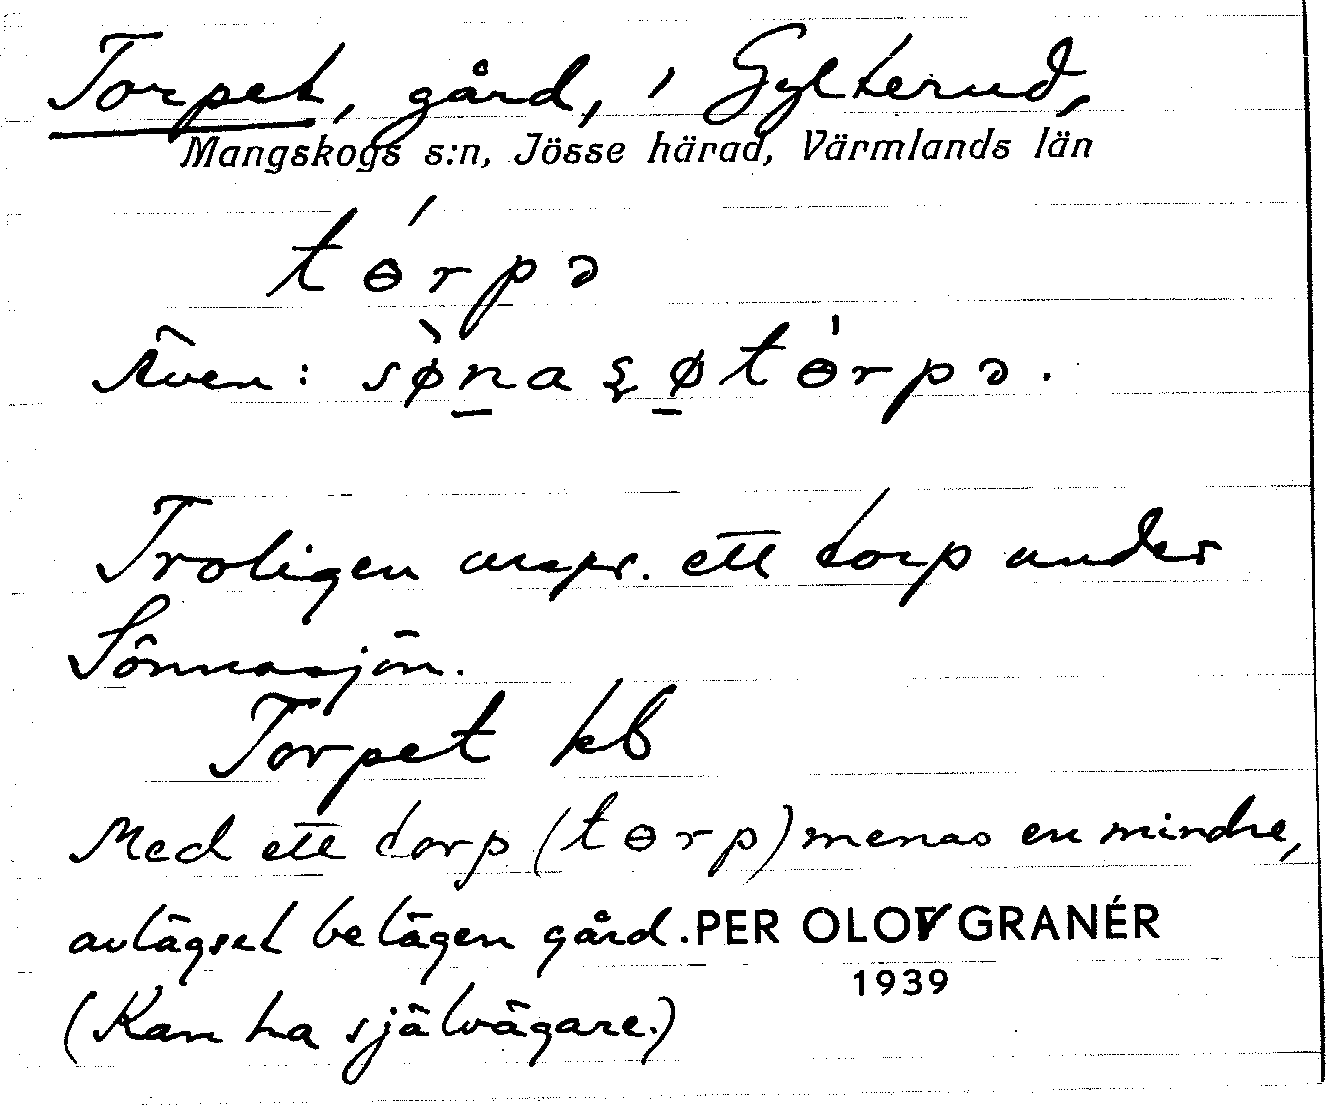 Torpet, gård, i Gylterud,
Mangskogs s:n, Jösse härad, Värmlands län
tɵ́rpə
Även: sø̀n̲aʂø̲tɵ̍rpə.
Troligen urspr. ett torp under
Sönnasjön.
Torpet kb
Med ett torp (tɵrp) menas en mindre,
avlägset belägen gård. PER OLOV GRANÉR
1939
(Kan ha självägare.)